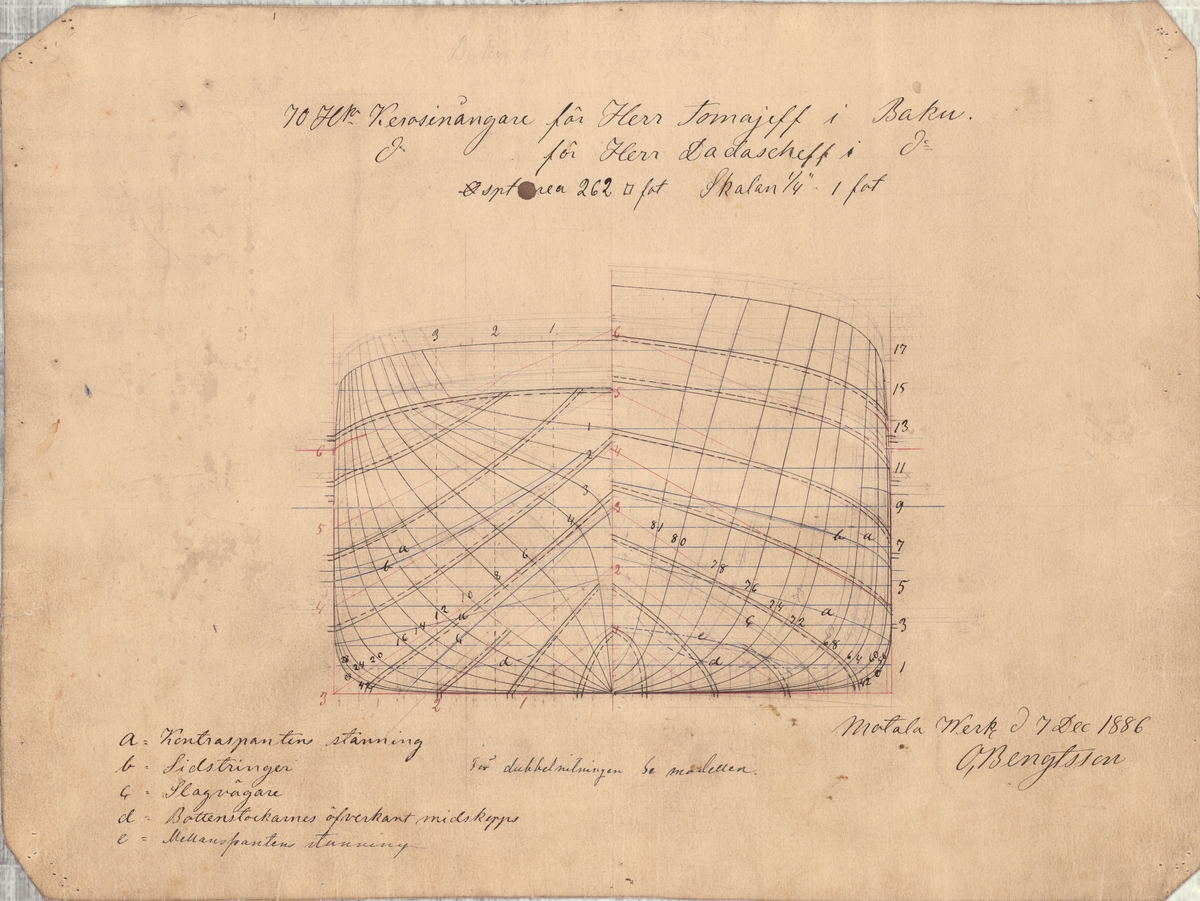 70 Hkr Kerosinångare för Herr Tomajeff i Baku.
do för Herr Dadascheff i do
spt area 262 □ fot Skalan 1/4" - 1 fot
3 2 1
6 5 4 3 2
17 15 13 11 9 7 5 3 1
6 5 4 3 2 1
1 2 3 4 6 8 10 12 14 16 20 24
81 80 78 76 74 72 68 64 60
a b a b a
a d e d
Motala Werk d 7 Dec 1886
C, Bengtsson
a = Kontraspantens stänning
b = Sidstringer
c = Slagvägare
d = Bottenstockarnes öfverkant midskepps
e = Mellanspantens stänning
För dubbelnitningen se modellen.